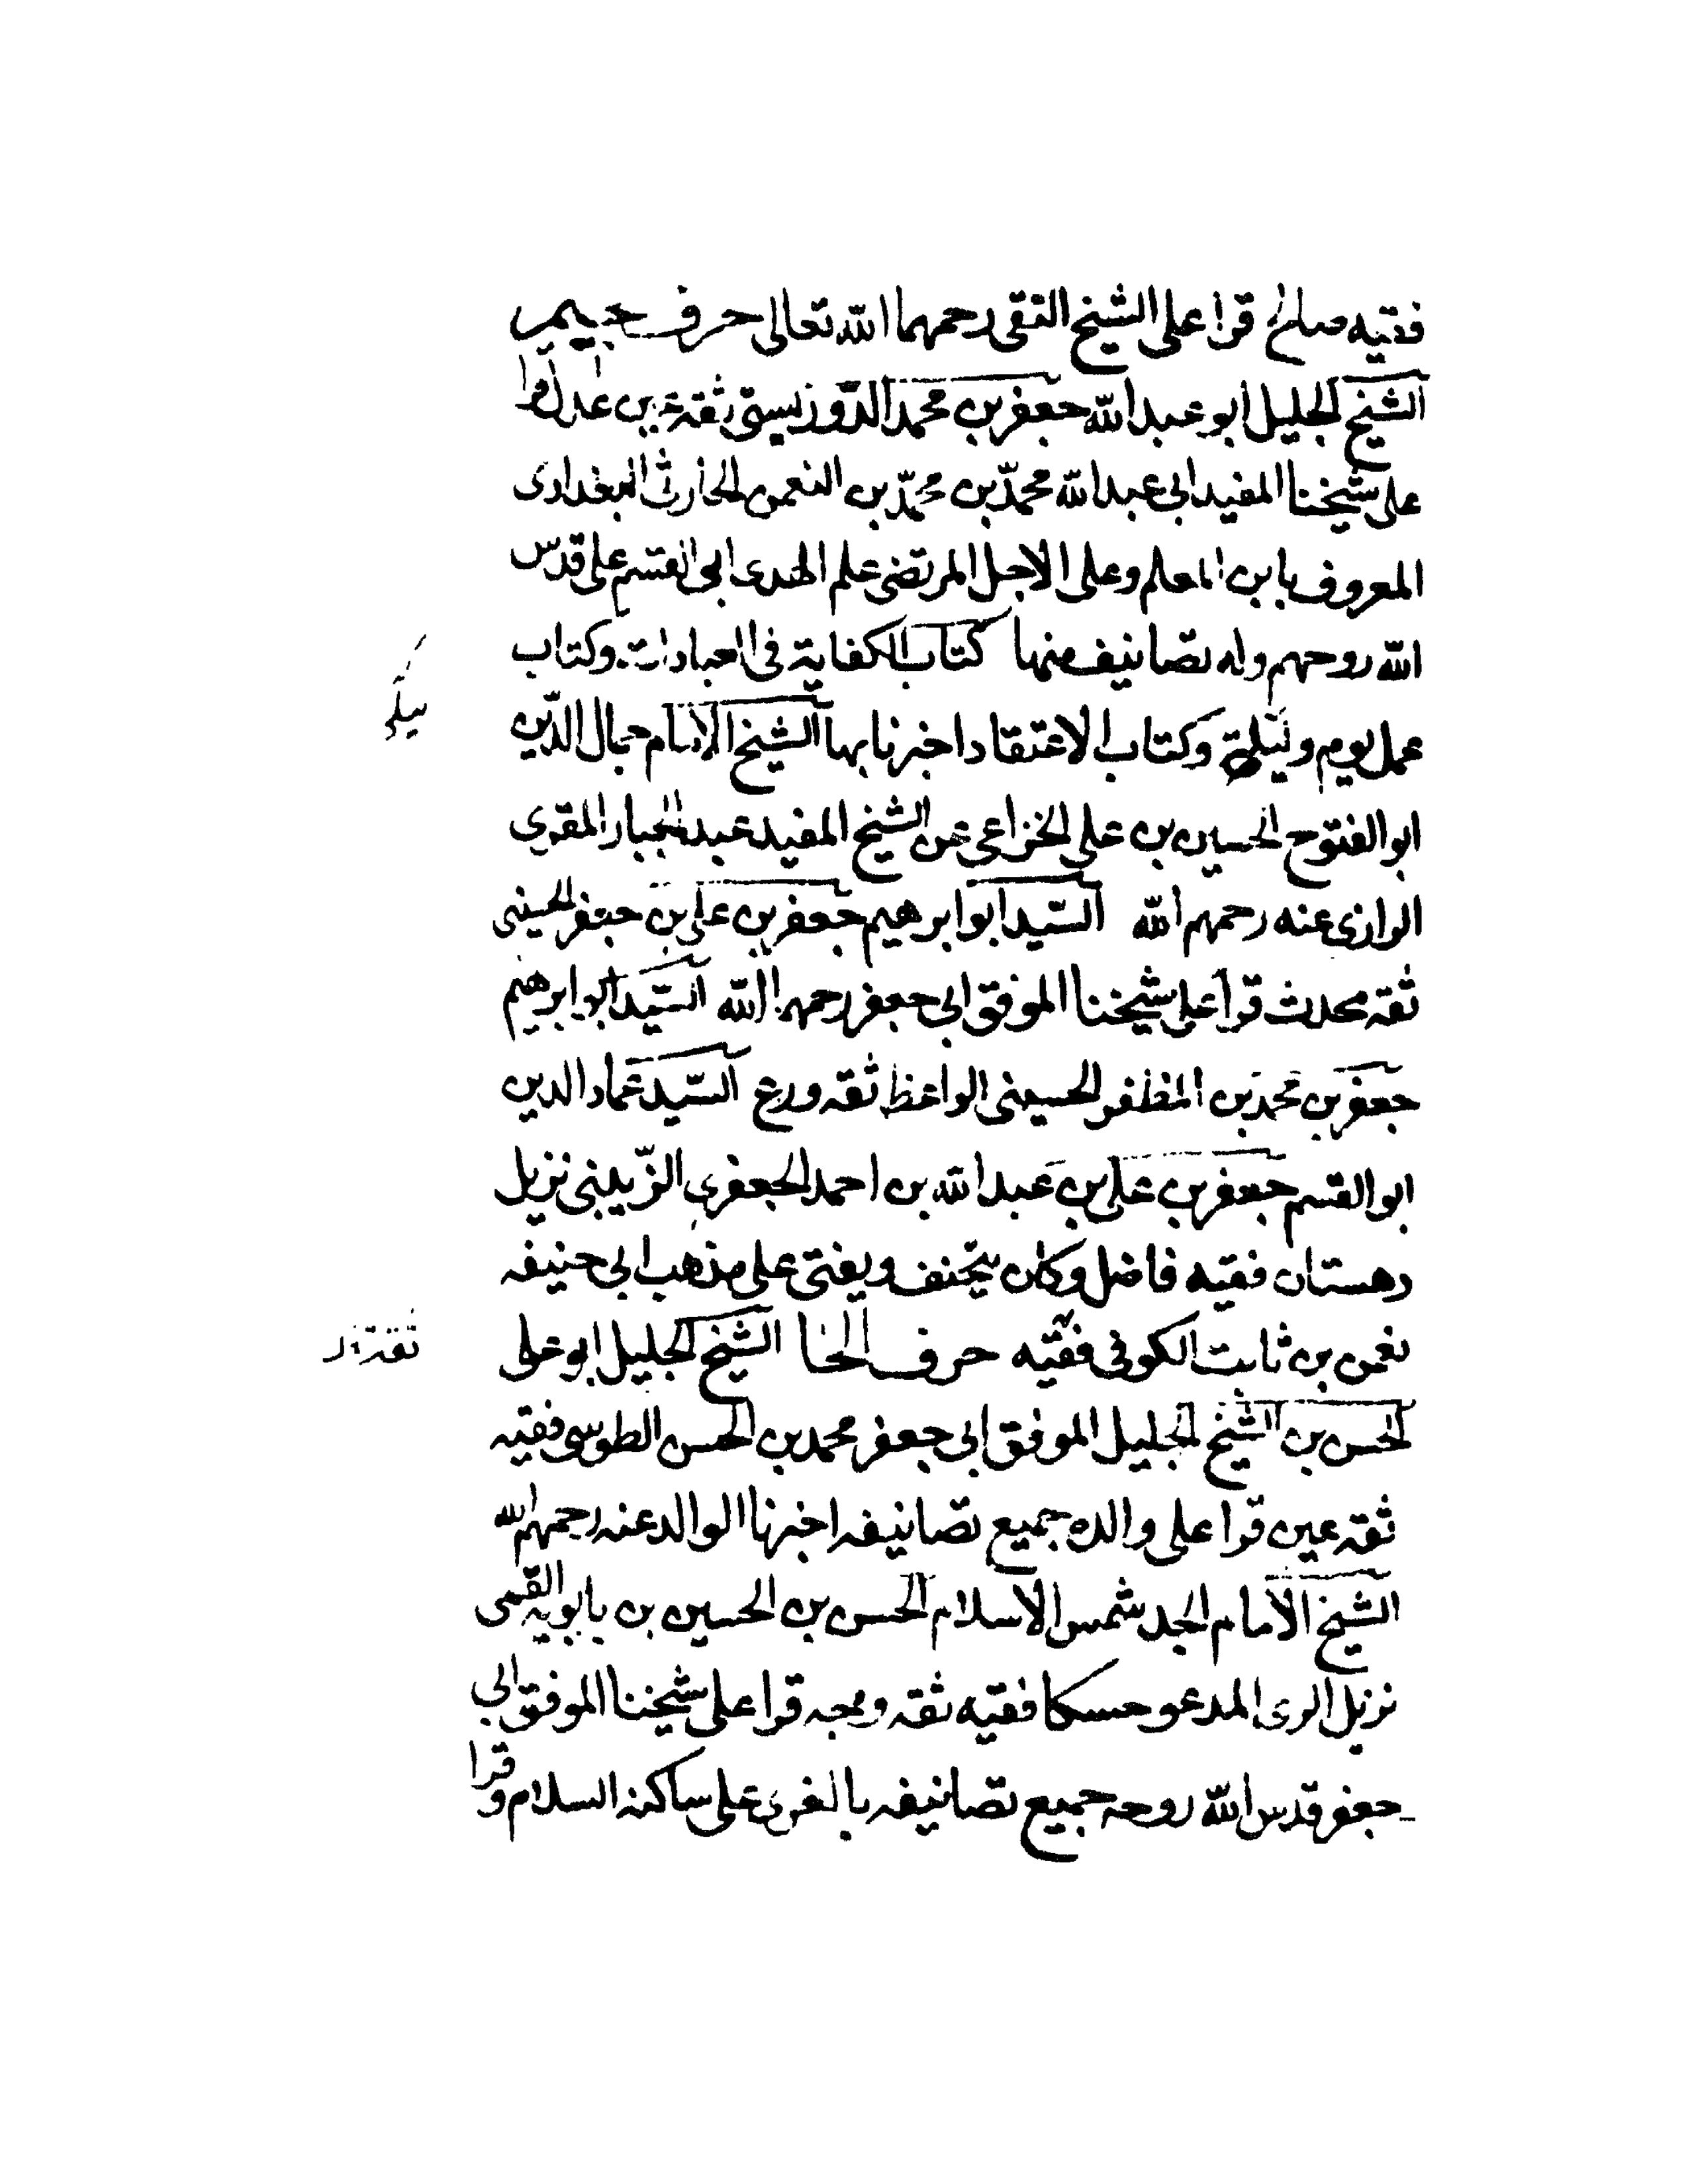 فقيه صالح قرا على الشيخ التقى رحمهما الله تعالى حرف جيم
الشيخ الجليل ابو عبد الله جعفر بن محمد الدّوريستى ثقة عين عدل قرا
على شيخنا المفيد ابى عبد الله محمّد بن محمّد بن النعمن الحارثى البغدادى
المعروف بابن المعلم وعلى الاجل المرتضى علم الهدى ابى القسم على قدّس
الله روحهم وله تصانيف منها كتاب الكفاية فى العبادات وكتاب
عمل يوم وليلة وكتاب الاعتقاد اخبرنا بها الشيخ الامام جمال الدّين
ابو الفتوح الحسين بن على الخزاعى عن الشيخ المفيد عبد الجبار المقرى
الرازى عنه رحمهم الله السّيد ابو ابرهيم جعفر بن على بن جعفر الحسينى
ثقه محدث قرا على شيخنا الموفق ابى جعفر رحمهما الله السّيد ابو ابرهيم
جعفر بن محمد بن المظفر الحسينى الواعظ ثقه ورع السّيد عماد الدين
ابو القسم جعفر بن على بن عبد الله بن احمد الجعفرى الزّينبى نزيل
دهستان فقيه فاضل وكان يتحنف ويفتى على مذهب ابى حنيفه
نعمن بن ثابت الكوفى فقيه حرف الحا الشيخ الجليل ابو على
ثقة
الحسن بن الشيخ الجليل الموفق ابى جعفر محمد بن الحسن الطوسى فقيه
ثقه عين قرا على والده جميع تصانيفه اخبرنا الوالد عنه رحمهم الله
الشيخ الامام الجد شمس الاسلام الحسن بن الحسين بن بابويه القمى
نزيل الرى المدعو حسكا فقيه ثقه وجه قرا على شيخنا الموفق ابى
جعفر قدس الله روحه جميع تصانيفه بالغرى على ساكنه السلام وقرا